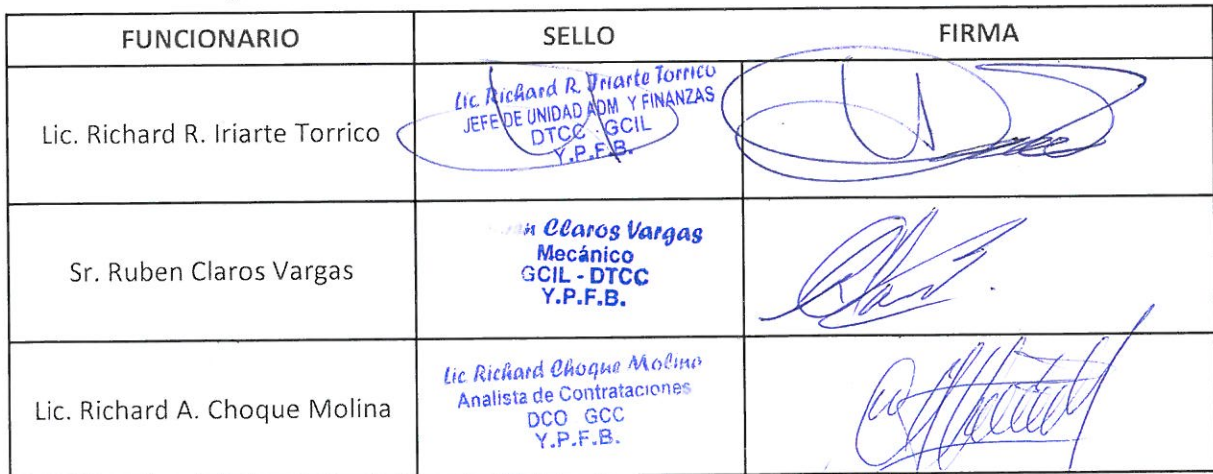 FUNCIONARIO SELLO FIRMA
Lic. Richard R. Iriarte Torrico
Lic. Richard R. Iriarte Torrico
JEFE DE UNIDAD ADM Y FINANZAS
DTCC GCIL
Y.P.F.B.
Sr. Ruben Claros Vargas
Claros Vargas
Mecánico
GCIL - DTCC
Y.P.F.B.
Lic. Richard A. Choque Molina
Lic Richard Choque Molina
Analista de Contrataciones
DCO GCC
Y.P.F.B.